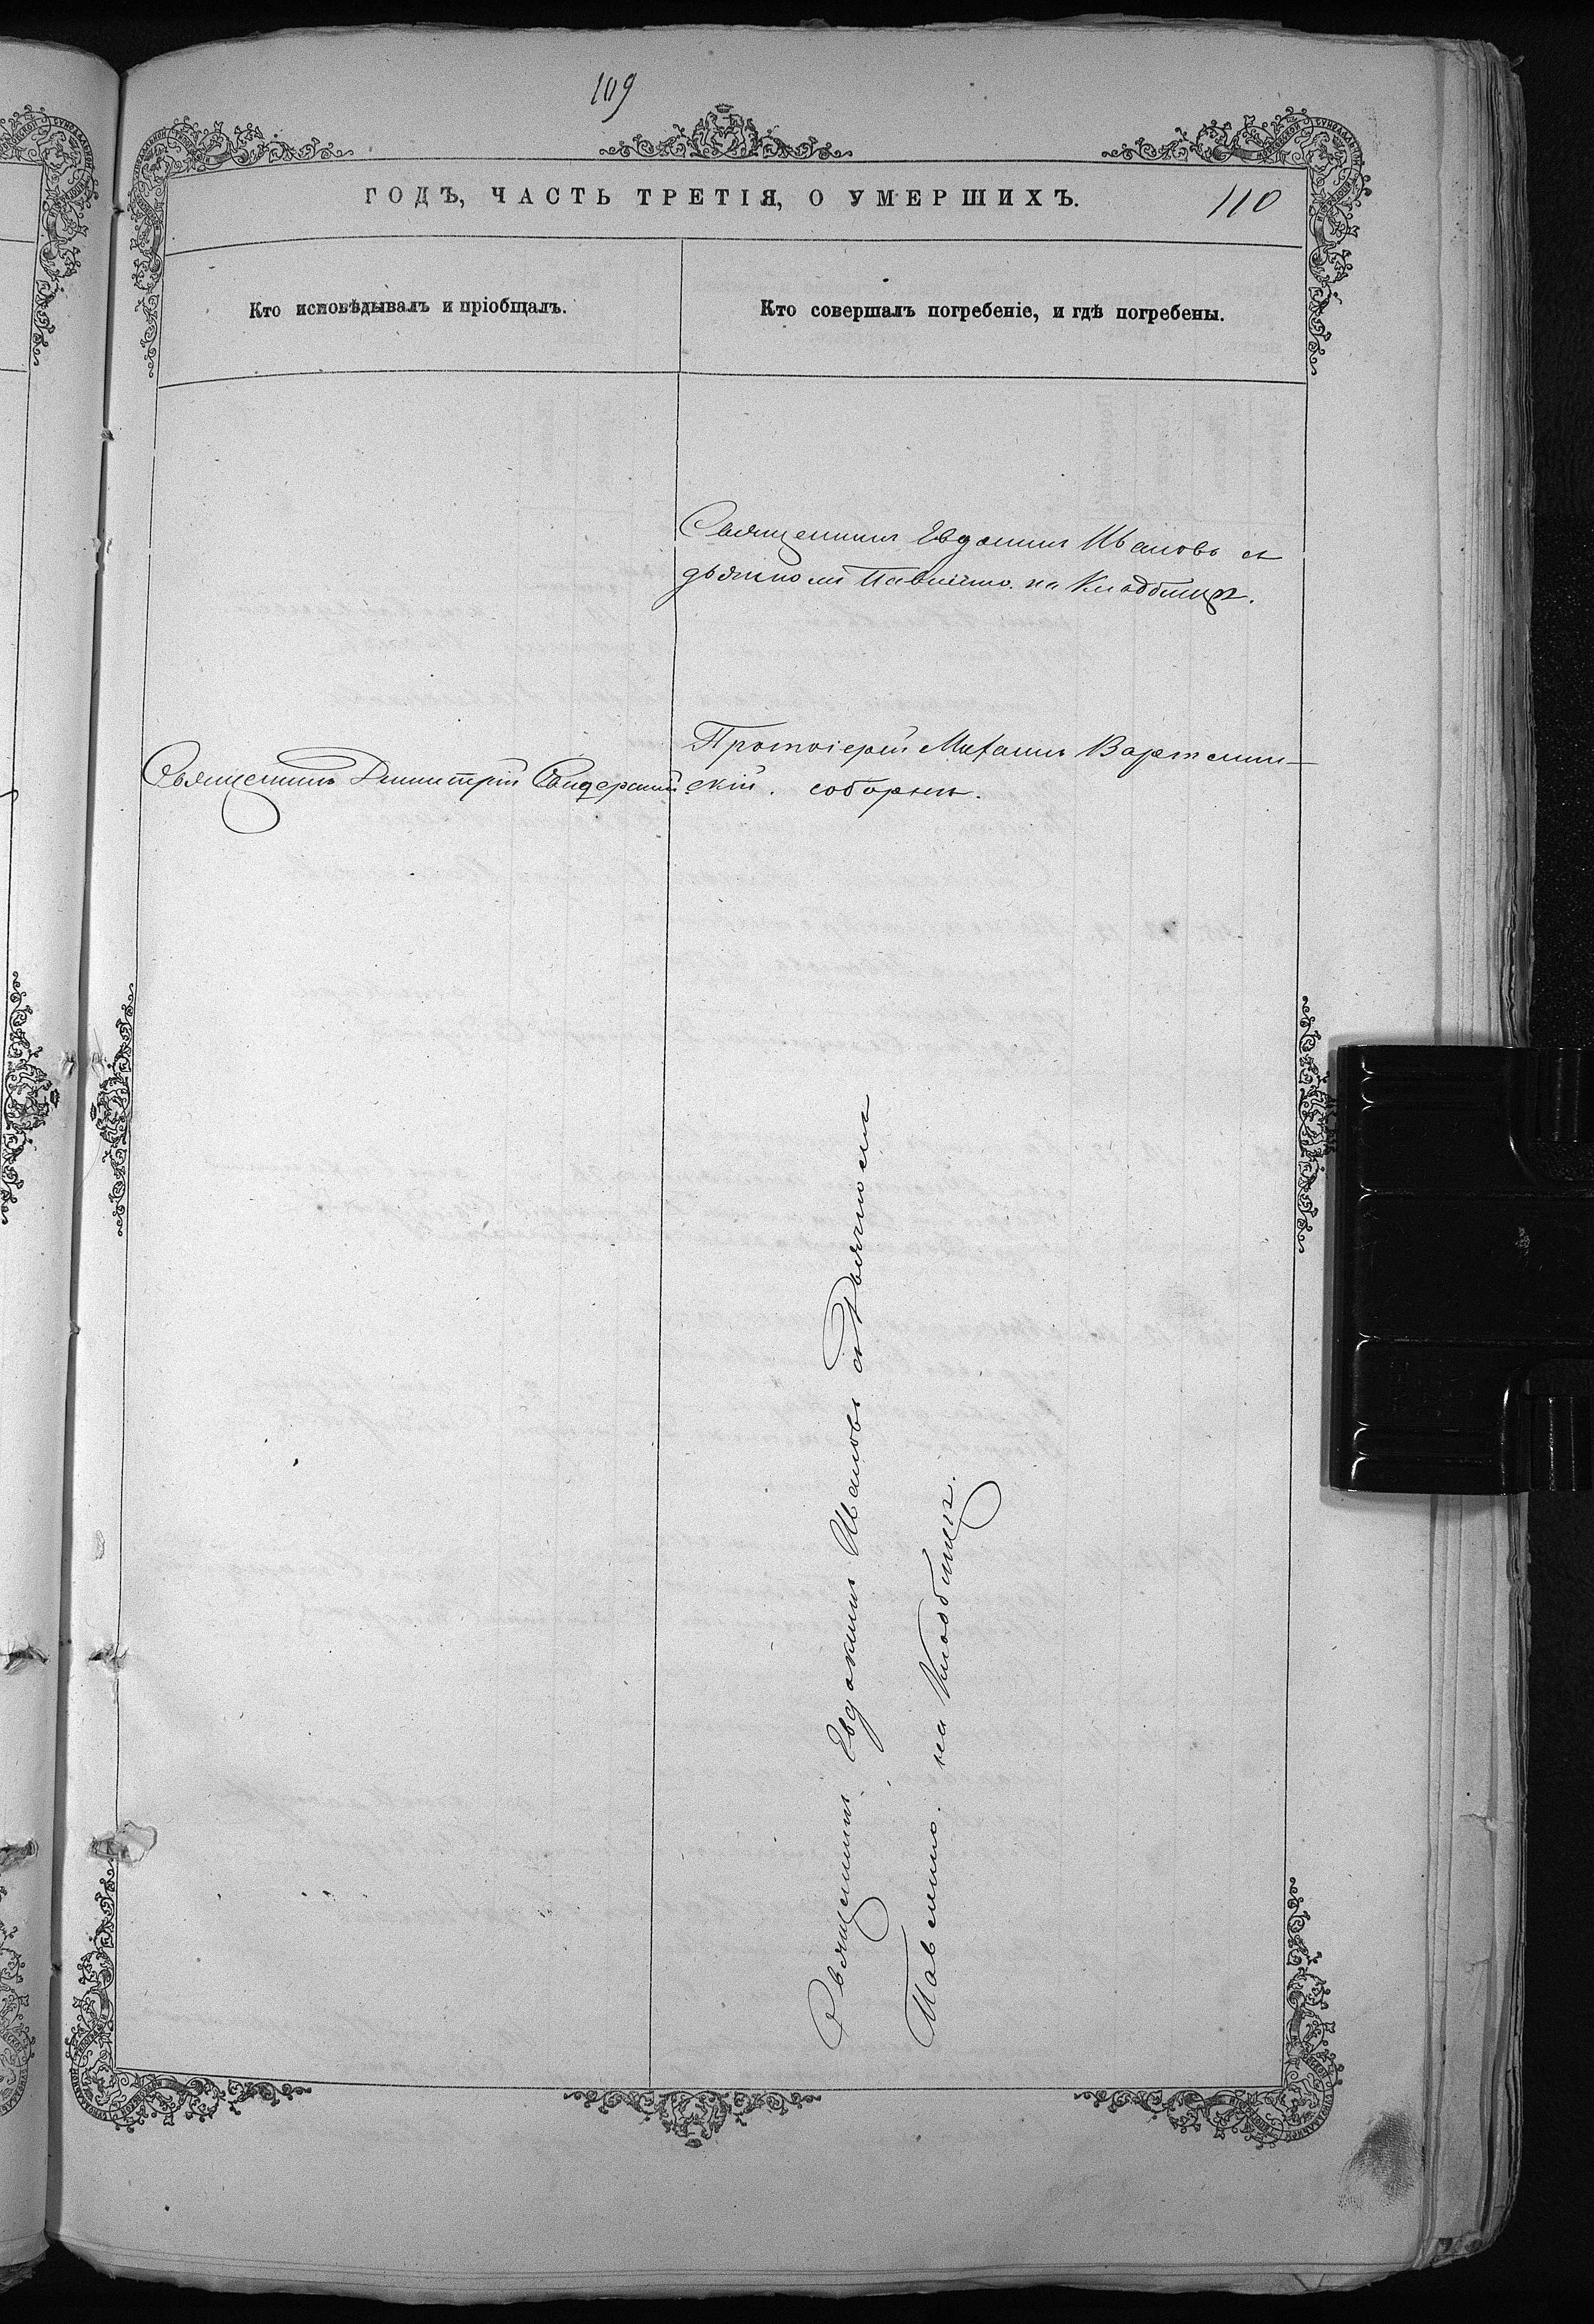 109
ГОДЪ, ЧАСТЬ ТРЕТІЯ, О УМЕРШИХЪ.
110
Кто исповѣдывалъ и пріобщалъ.
Кто совершалъ погребеніе, и гдѣ погребены.
Священникъ Евдокимъ Ивановъ съ
дьячкомъ Павленко. на Кладбищѣ.
Протоіерей Михаилъ Варжемин-
Священникъ Димитрій
скій. соборнѣ.
Священникъ Евдокимъ Ивановъ съ Дьячкомъ
Павленко. на Кладбищѣ.